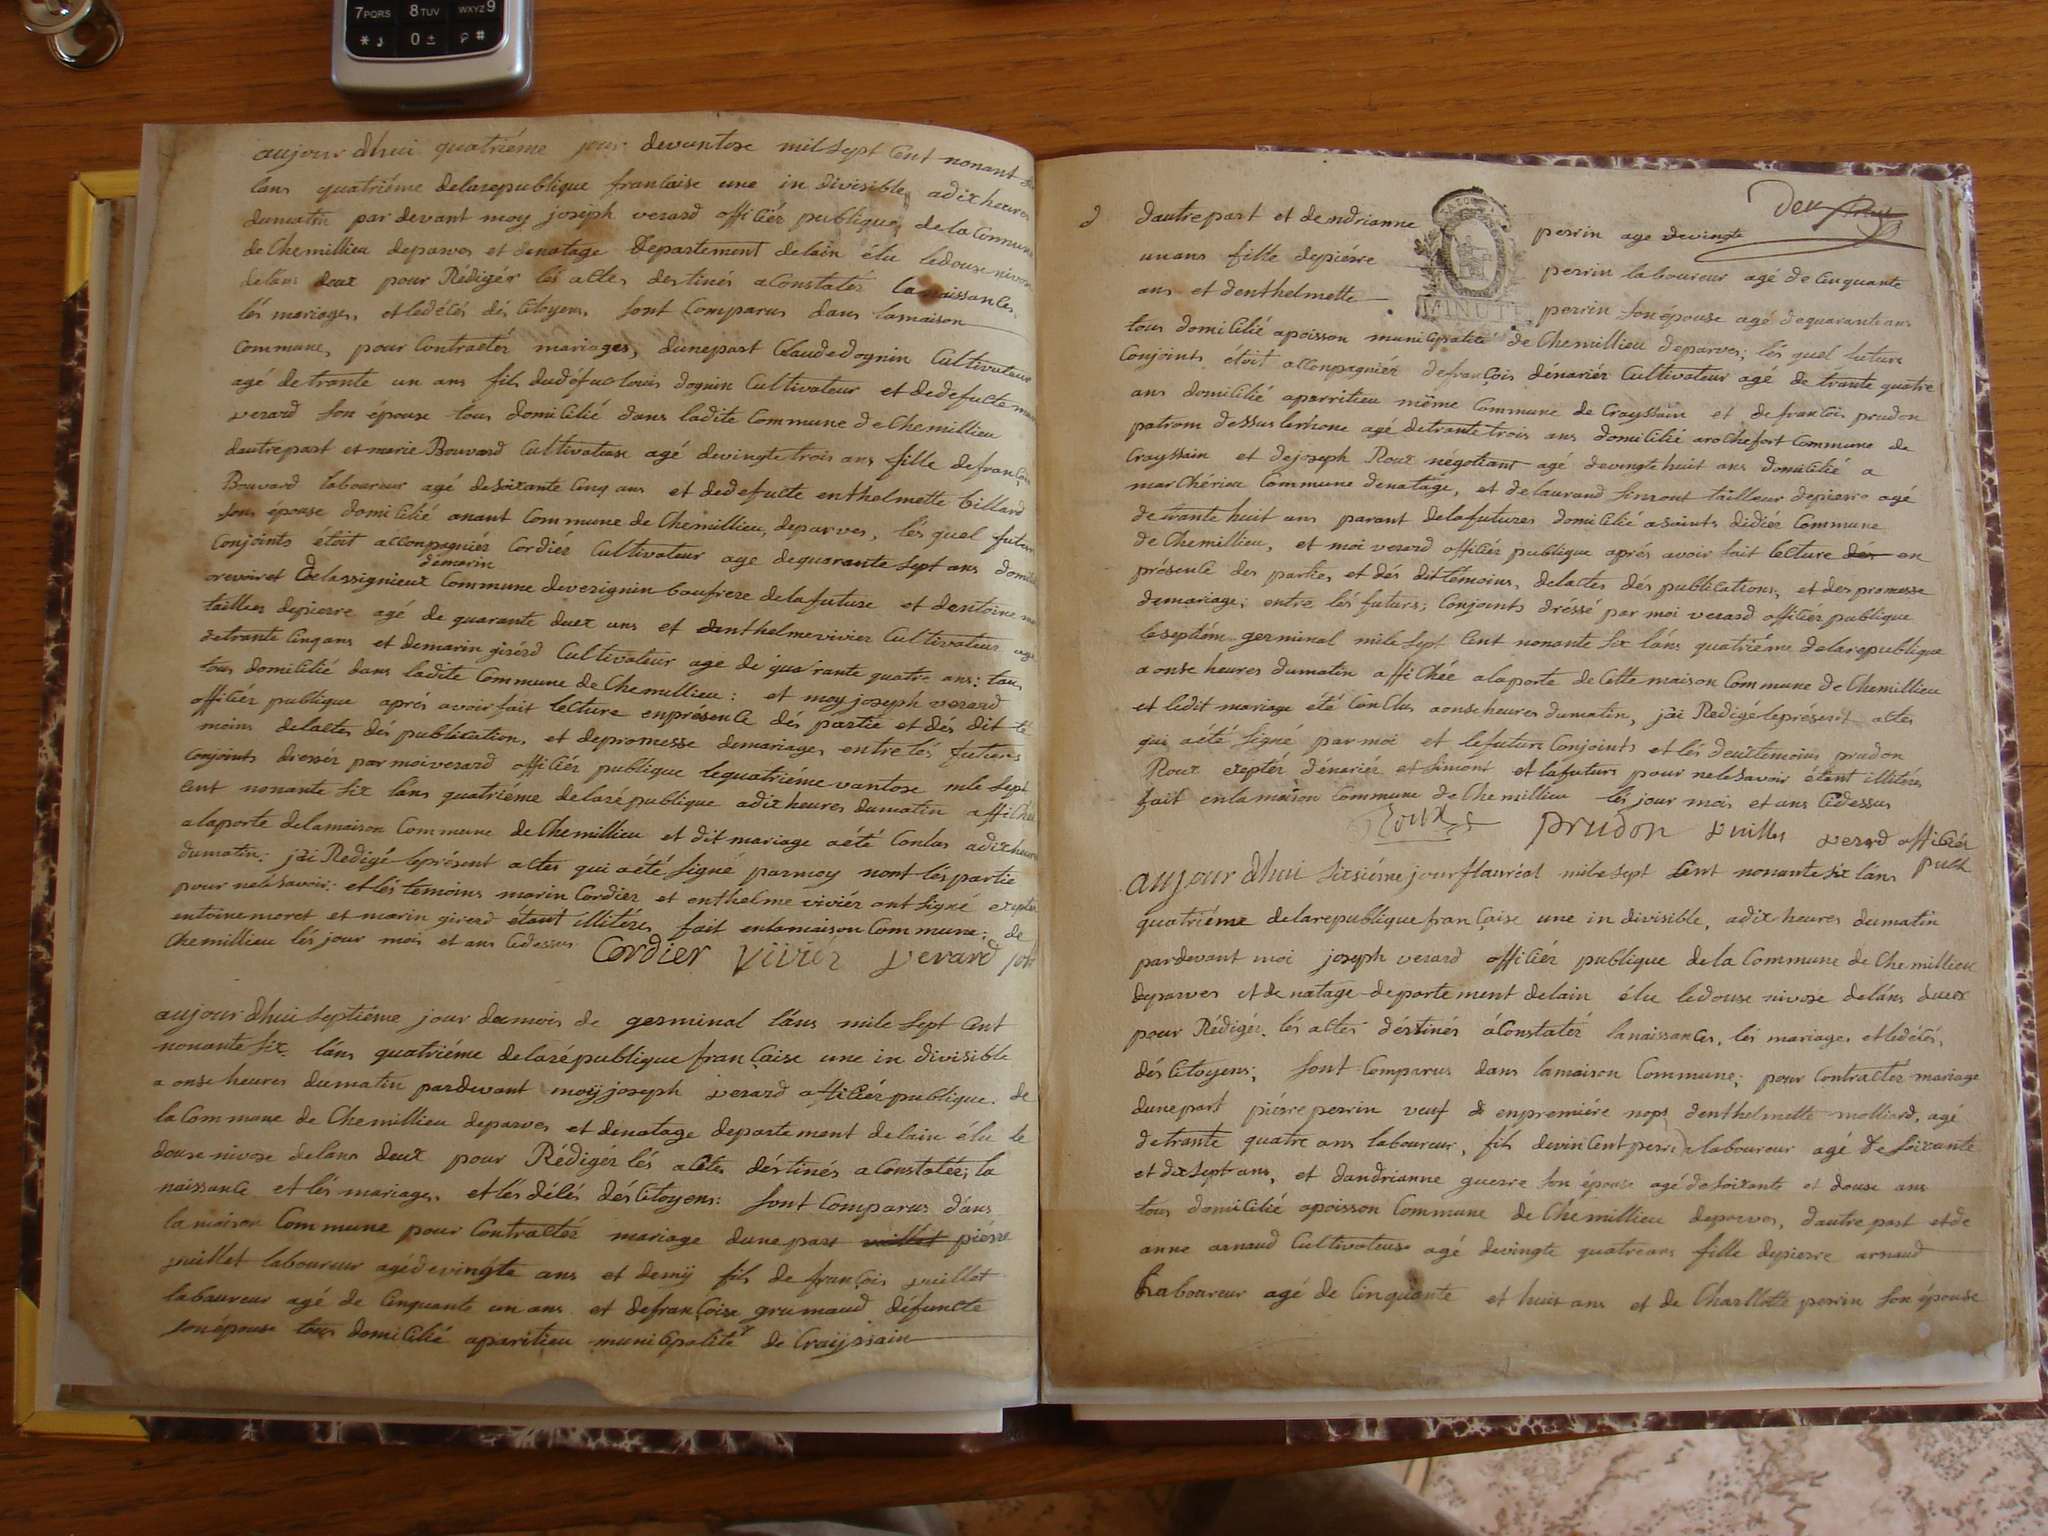 7PQRS 8TUV WXYZ9
* 0± #
aujour dhui quatriéme jour devantose mil sept Cent nonant
lans quatriéme delarepublique francaise une in divisible, adix heures
dumatin par devant moy joseph verard officiér publique, de la Commune
de Chemillieu deparves et denatage Departement delain élu ledouse nivos
delans deux pour Rédigér lés actes destinés aConstatér la naissances,
lés mariages, et ledélés dés Citoyens, sont Comparus dans lamaison
Commune, pour Contractér mariages, dunepart Claudedognin Cultivateur
agé detrante un ans fils dudéfuc louis dognin Cultivateur et dedefucte
verard son épouse tous domicilié dans ladite Commune deChemillieu
dautrepart et marie Bouvard Cultivateuse agé devingte trois ans fille defrançois
Bouvard laboureur agé desoixante Cinq ans et dedefucte enthelmette billard
son épouse domicilié anant Commune de Chemillieu, deparves, lés quel future
Conjoints étoit acConpagniér Cordiér Cultivateur age dequarante sept ans
demarin
orevoiret Delassignieux Commune deverignin baufrere delafuture et dentoine
taillieu depierre agé de quarante duex ans et denthelmevivier Cultivateur agé
detrante Cinq ans et demarin girérd Cultivateur age de quarante quatre ans: tous
tous domicilié dans ladite Commune de Chemillieu: et moy joseph verard
officiér publique aprés avoir fait lecture enprésence dés partie et dés dit té
moins delactes dés publication, et depromesse demariages entre lés futures
Conjoints dressér par moi verard officiér publique lequatriéme vantose mile sept
Cent nonante six lans quatriéme delarépublique adix heures dumatin affiché
alaporte delamaison Commune deChemillieu et dit mariage aété Conlus adixheures
dumatin: jai Redigé leprésent actes qui aété signé parmoy nont lés partie
pour nelesavoir: et lés temoins marin Cordier et enthelme viviér ont signé exepter
entoine moret et marin girerd étant illitérés fait enlamaison Commune: de
Chemillieu lés jour mois et ans Cidessus Cordier viviér verard
aujour dhui septiéme jour dumois de germinal lans mile sept Cent
nonante six lans quatriéme delarépublique française une in divisible
a onse heures dumatin pardevant moy joseph verard officiér publique. de
la Commune de Chemillieu deparves et denatage departement delain élu le
douse nivose délans deux pour Rédiger lés actes déstinés aConstatér; la
naissance et lés mariages, et lés délés dés Citoyens: sont Comparus dans
la maison Commune pour Contractér mariage dune part vuillet piérre
vuillet laboureur agé devingte ans et demÿ fils de françois vuillet
labaureur agé de Cinquante un ans et defrançoise grumaud défuncte
son épouse tous domicilié aparitieu municipalité de Crayssain
deux
dautre part et dendrianne perrin age devingte
un ans fille depiérre perrin laboureur agé de Cinquante
ans et denthelmette perrin son épouse agé dequarante ans
MINUTE
tous domicilié apoisson municipalité de Chemillieu deparves; lés quel future
Conjoints étoit acConpagniér defrançois dénariér Cultivateur agé de trante quatre
ans domicilié aparritieu même Commune de Crayssain et defrançois prudon
patrom dessus lerhone agé detrante trois ans domicilié arochefort Commune de
Crayssain et dejoseph Roux négotiant agé devingte huit ans domicilié a
marchérieu Commune denatage, et delaurand simont tailleur depierre agé
de trante huit ans parant delafutures domicilié asaints didiér Commune
de Chemillieu, et moi verard officiér publique aprés avoir fait lecture dés en
présence des parties et dés dit témoins, delactés dés publications, et des promesse
demariage; entre lés futurs; Conjoints dréssé par moi verard officiér publique
leseptém germinal mile sept Cent nonante six lans quatriéme delarepublique
a onse heures dumatin affichée alaporte de Cette maison Commune de Chemillieu
et ledit mariage été Conclus aonseheures dumatin, jai Redigé leprésent actes
qui aété signé par moi et lefuture Conjoints et lés deuxtemoins prudon
Roux exeptér dénariér et simont et lafuture pour nelesavoir étant illitérés
fait enlamaison Commune de Chemillieu lés jour mois et ans Cidessus
Roux prudon vuillet verard officiér publ
aujour dhui sixiéme jour flauréal mile sept Cent nonante six lans
quatriéme delarepublique française une in divisible, adix heures dumatin
pardevant moi joseph verard officiér publique de la Commune de Chemillieu
deparves et de natage departement delain élu ledouse nivose delans duex
pour Rédigér. lés actes déstinés áConstatér la naissances, lés mariages et ledélés,
dés Citoyens; sont Comparus dans lamaison Commune; pour Contractér mariage
dunepart piérre perrin veuf enpremiére nops denthelmette molliard, agé
detrante quatre ans laboureur, fils devincent perrin laboureur agé de soixante
et dix sept ans, et dandrianne guerre son épouse agé desoixante et douse ans
tous domicilié apoisson Commune de Chémillieu deparves, dautre part et de
anne arnaud Cultivateuse agé devingte quatre ans fille depierre arnaud
Laboureur agé de Cinquante et huit ans et de Charllotte perrin son épouse